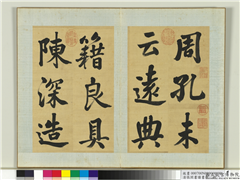 周孔未
云遠典
籍良具
陳深造